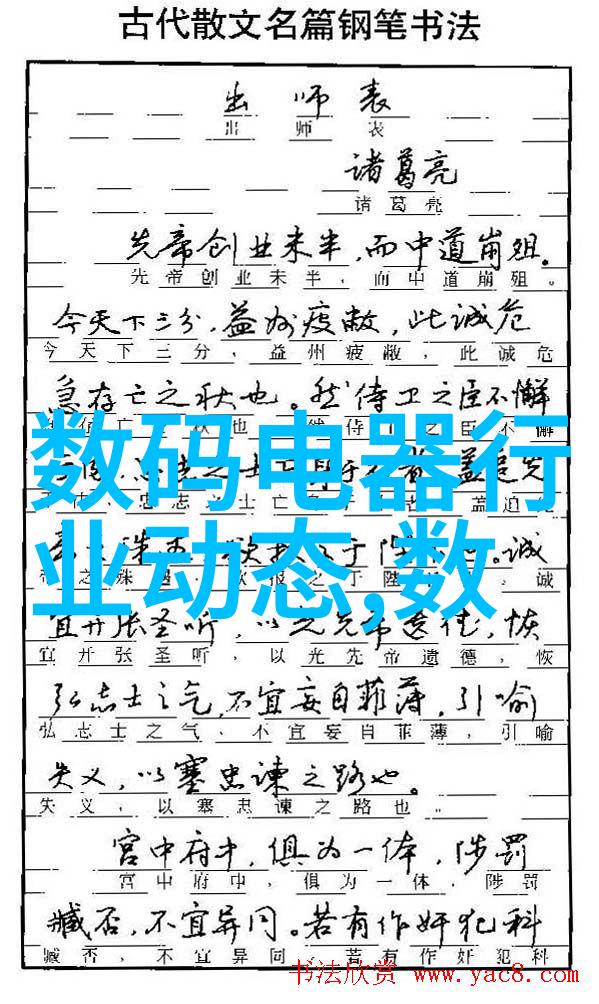 古代散文名篇钢笔书法
出师表
出师表
诸葛亮
诸葛亮
先帝创业未半,而中道崩殂。
先帝创业未半,而中道崩殂。
今天下三分,益州疲敝,此诚危
今天下三分,益州疲敝,此诚危
急存亡之秋也。然侍卫之臣不懈
亡 秋也 然侍 之臣不懈
数码电器行
忠志之士 盖追先
忠志之士亡 盖追
业动态,数
殊 于陛 。诚
之殊 欲报之于陛 诚
宜开张圣听,以光先帝遗德,恢
宜开张圣听,以光先帝遗德,恢
弘志士之气,不宜妄自菲薄,引喻
弘志士之气,不宜妄自菲薄,引喻
失义,以塞忠谏之路也。
失义,以塞忠谏之路也。
宫中府中,俱为一体,陟罚
宫中府中,俱为一体,陟罚
臧否,不宜异同。若有作奸犯科
臧否,不宜异同。若有作奸犯科
书法欣赏 www.yac8.com